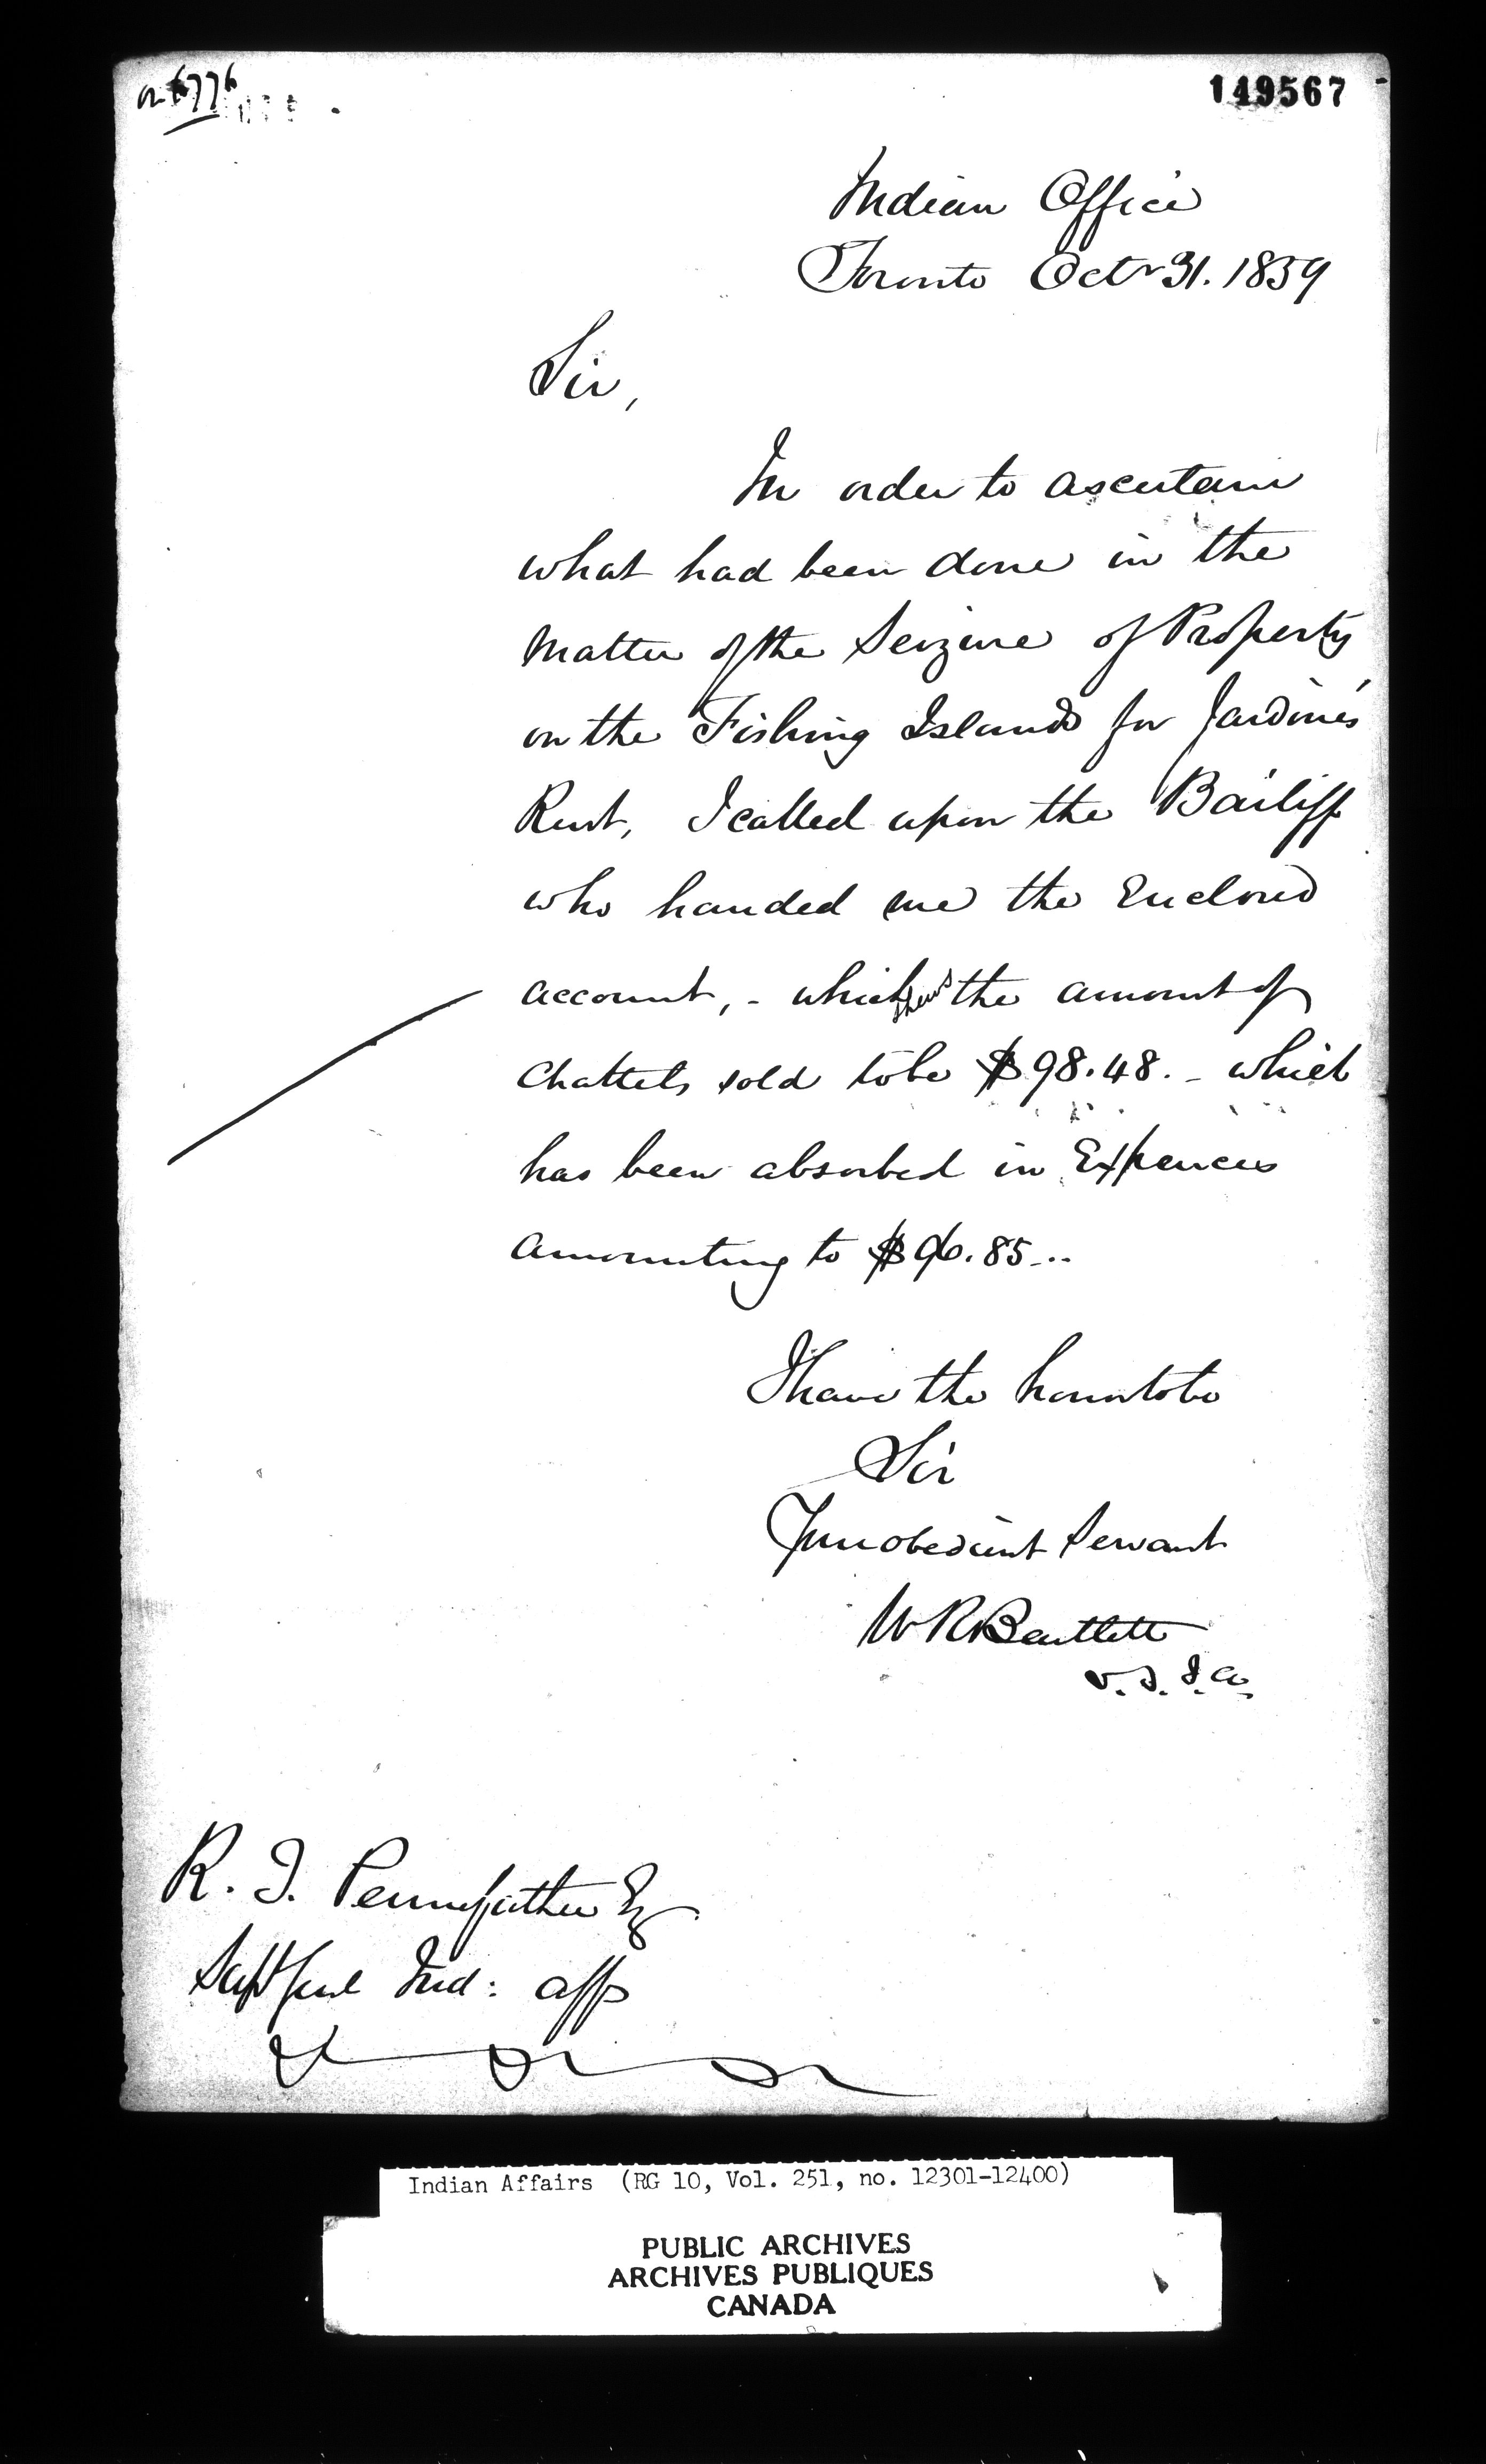 149567
Indian Office
Toronto Octr 31. 1859
Sir,
In order to ascertain
what had been done in the
Matter of the Seizure of Property
on the Fishing Islands for Jardine's
Rent, I called upon the Bailiff
who handed me the Enclosed
account, - which shews the amount of
Chattels sold to be $98.48. - which
has been absorbed in Expences
amounting to $96.85 - ..
I have the honor to be
Sir
Your obedient Servant
W R Bartlett
V. S. I. A.
R. T. Pennefather Esq
Supt Genl Ind: Affs
Indian Affairs (RG 10, Vol. 251, no. 12301-12400)
PUBLIC ARCHIVES
ARCHIVES PUBLIQUES
CANADA